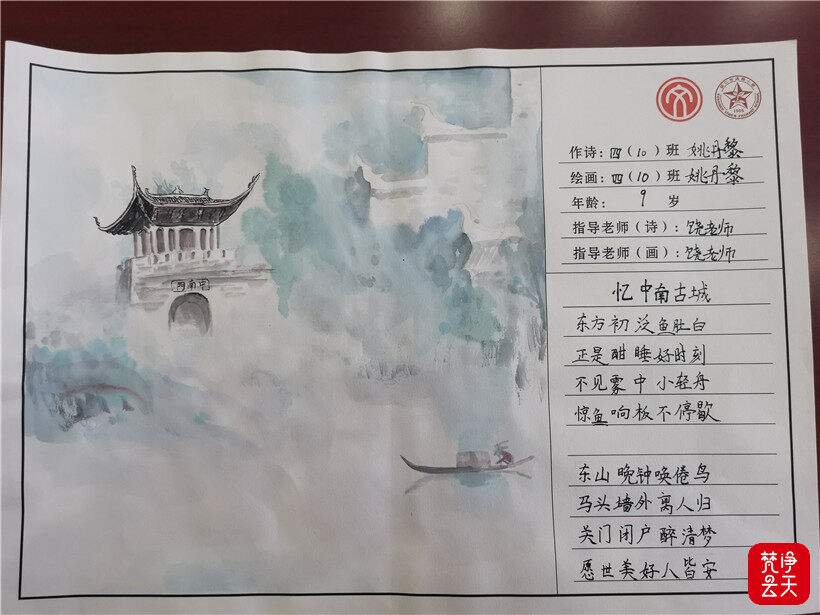 中南门
作诗：四（10）班 姚丹黎
绘画：四（10）班 姚丹黎
年龄： 9 岁
指导老师（诗）：饶老师
指导老师（画）：饶老师
忆中南古城
东方初泛鱼肚白
正是酣睡好时刻
不见雾中小轻舟
惊鱼响板不停歇
东山晚钟唤倦鸟
马头墙外离人归
关门闭户醉清梦
愿世美好人皆安
梵净
云天